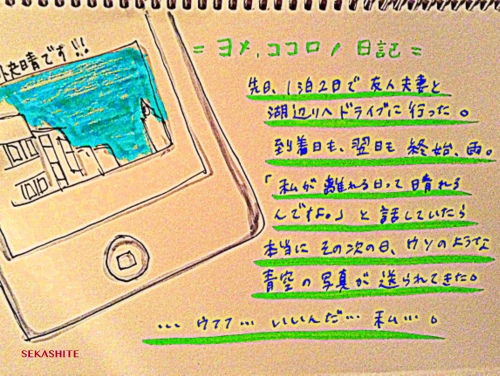 快晴です!!!
= ヨメ,ココロノ日記 =
先日、1泊2日で友人夫妻と
湖辺りへドライブに行った。
到着日も、翌日も終始、雨。
「私が離れる日って晴れる
んですよ。」と話していたら
本当にその次の日、ウソのような
青空の写真が送られてきた。
… ウフフ… いいんだ… 私…。
SEKASHITE